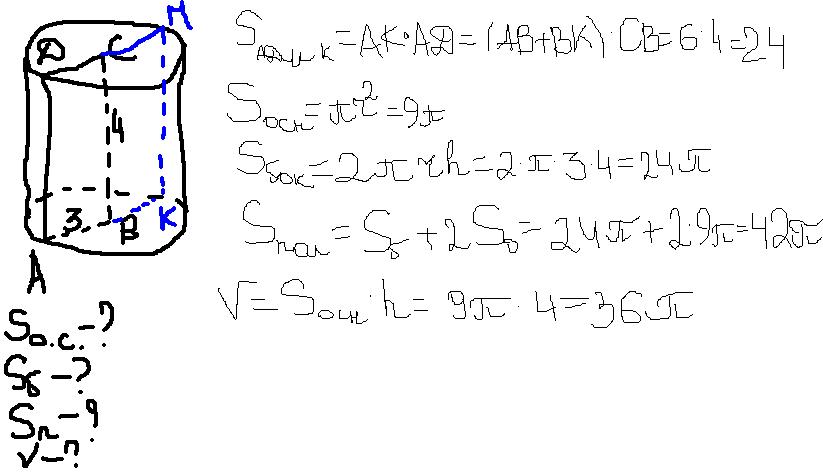 M
D C
4
3 B K
A
S о.с. - ?
Sб - ?
Sп - ?
V - ?
S = AK·AD = (AB+BK)·CB = 6·4 = 24
Sосн = πr² = 9π
Sбок = 2πrh = 2·π·3·4 = 24π
Sпол = Sб + 2Sо = 24π + 2·9π = 42π
V = Sосн·h = 9π·4 = 36π